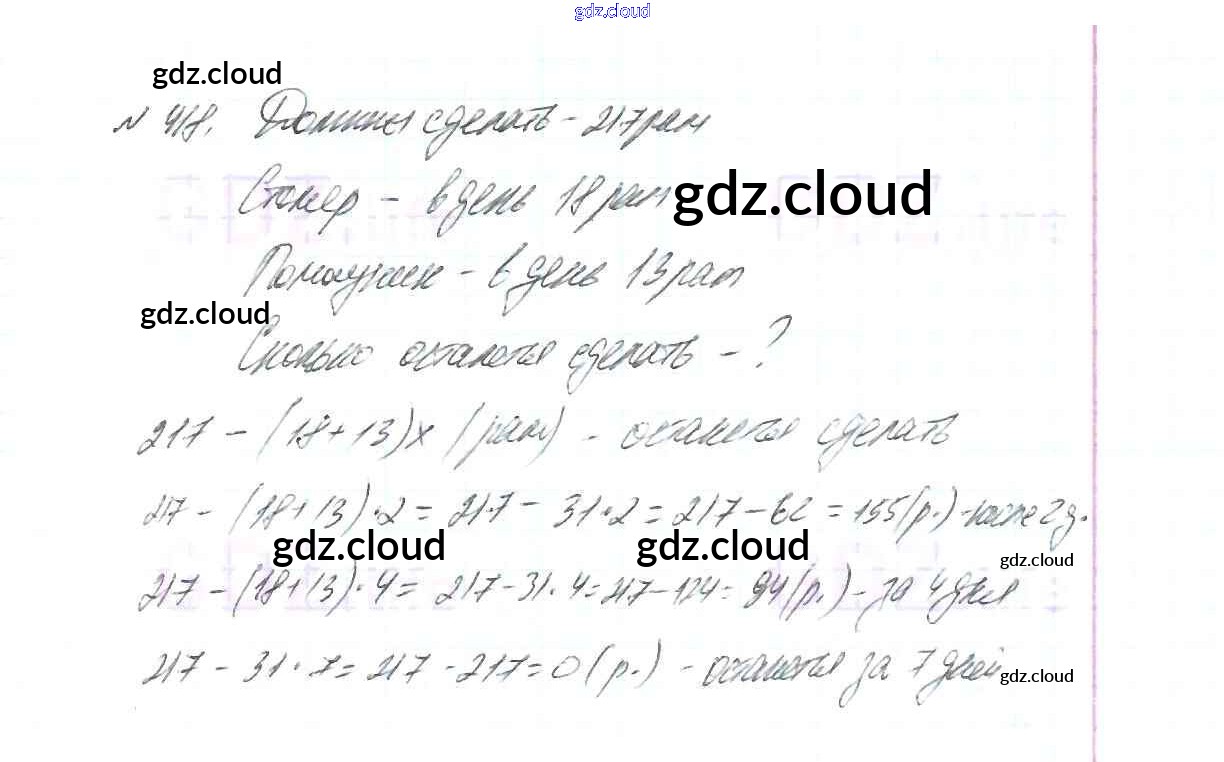 gdz.cloud
gdz.cloud
№ 418. Должны сделать - 217 рам
Столяр - в день 18 рам
gdz.cloud
Помощник - в день 13 рам
gdz.cloud
Сколько останется сделать - ?
217 - (18 + 13)x (рам) - останется сделать
217 - (18 + 13) · 2 = 217 - 31 · 2 = 217 - 62 = 155 (р.) - после 2 д.
gdz.cloud gdz.cloud
gdz.cloud
217 - (18 + 13) · 4 = 217 - 31 · 4 = 217 - 124 = 94 (р.) - за 4 дня
217 - 31 · 7 = 217 - 217 = 0 (р.) - останется за 7 дней
gdz.cloud